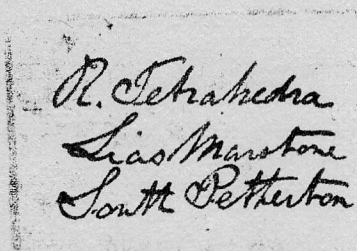 R. Tetrahedra
Lias Marstone
South Petherton